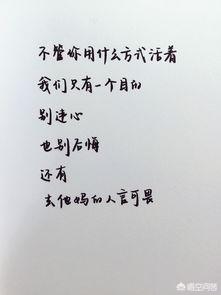 不管你用什么方式活着
我们只有一个目的
别违心
也别后悔
还有
去他妈的人言可畏
悟空问答